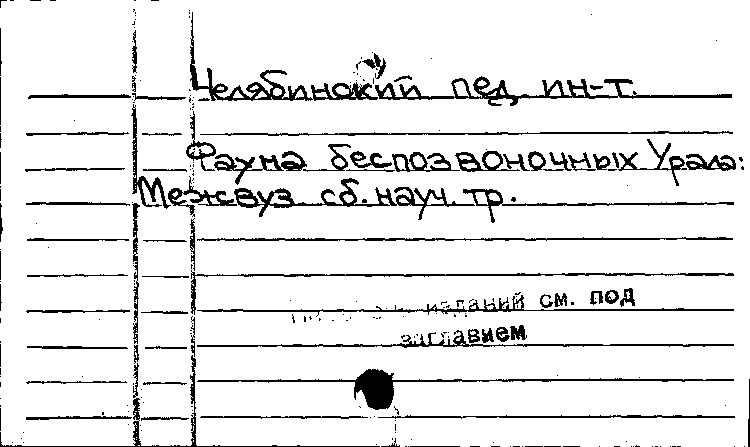 Челябинский пед. ин-т.
Фауна беспозвоночных Урала:
Межвуз. сб. науч. тр.
изданий см. под
заглавием